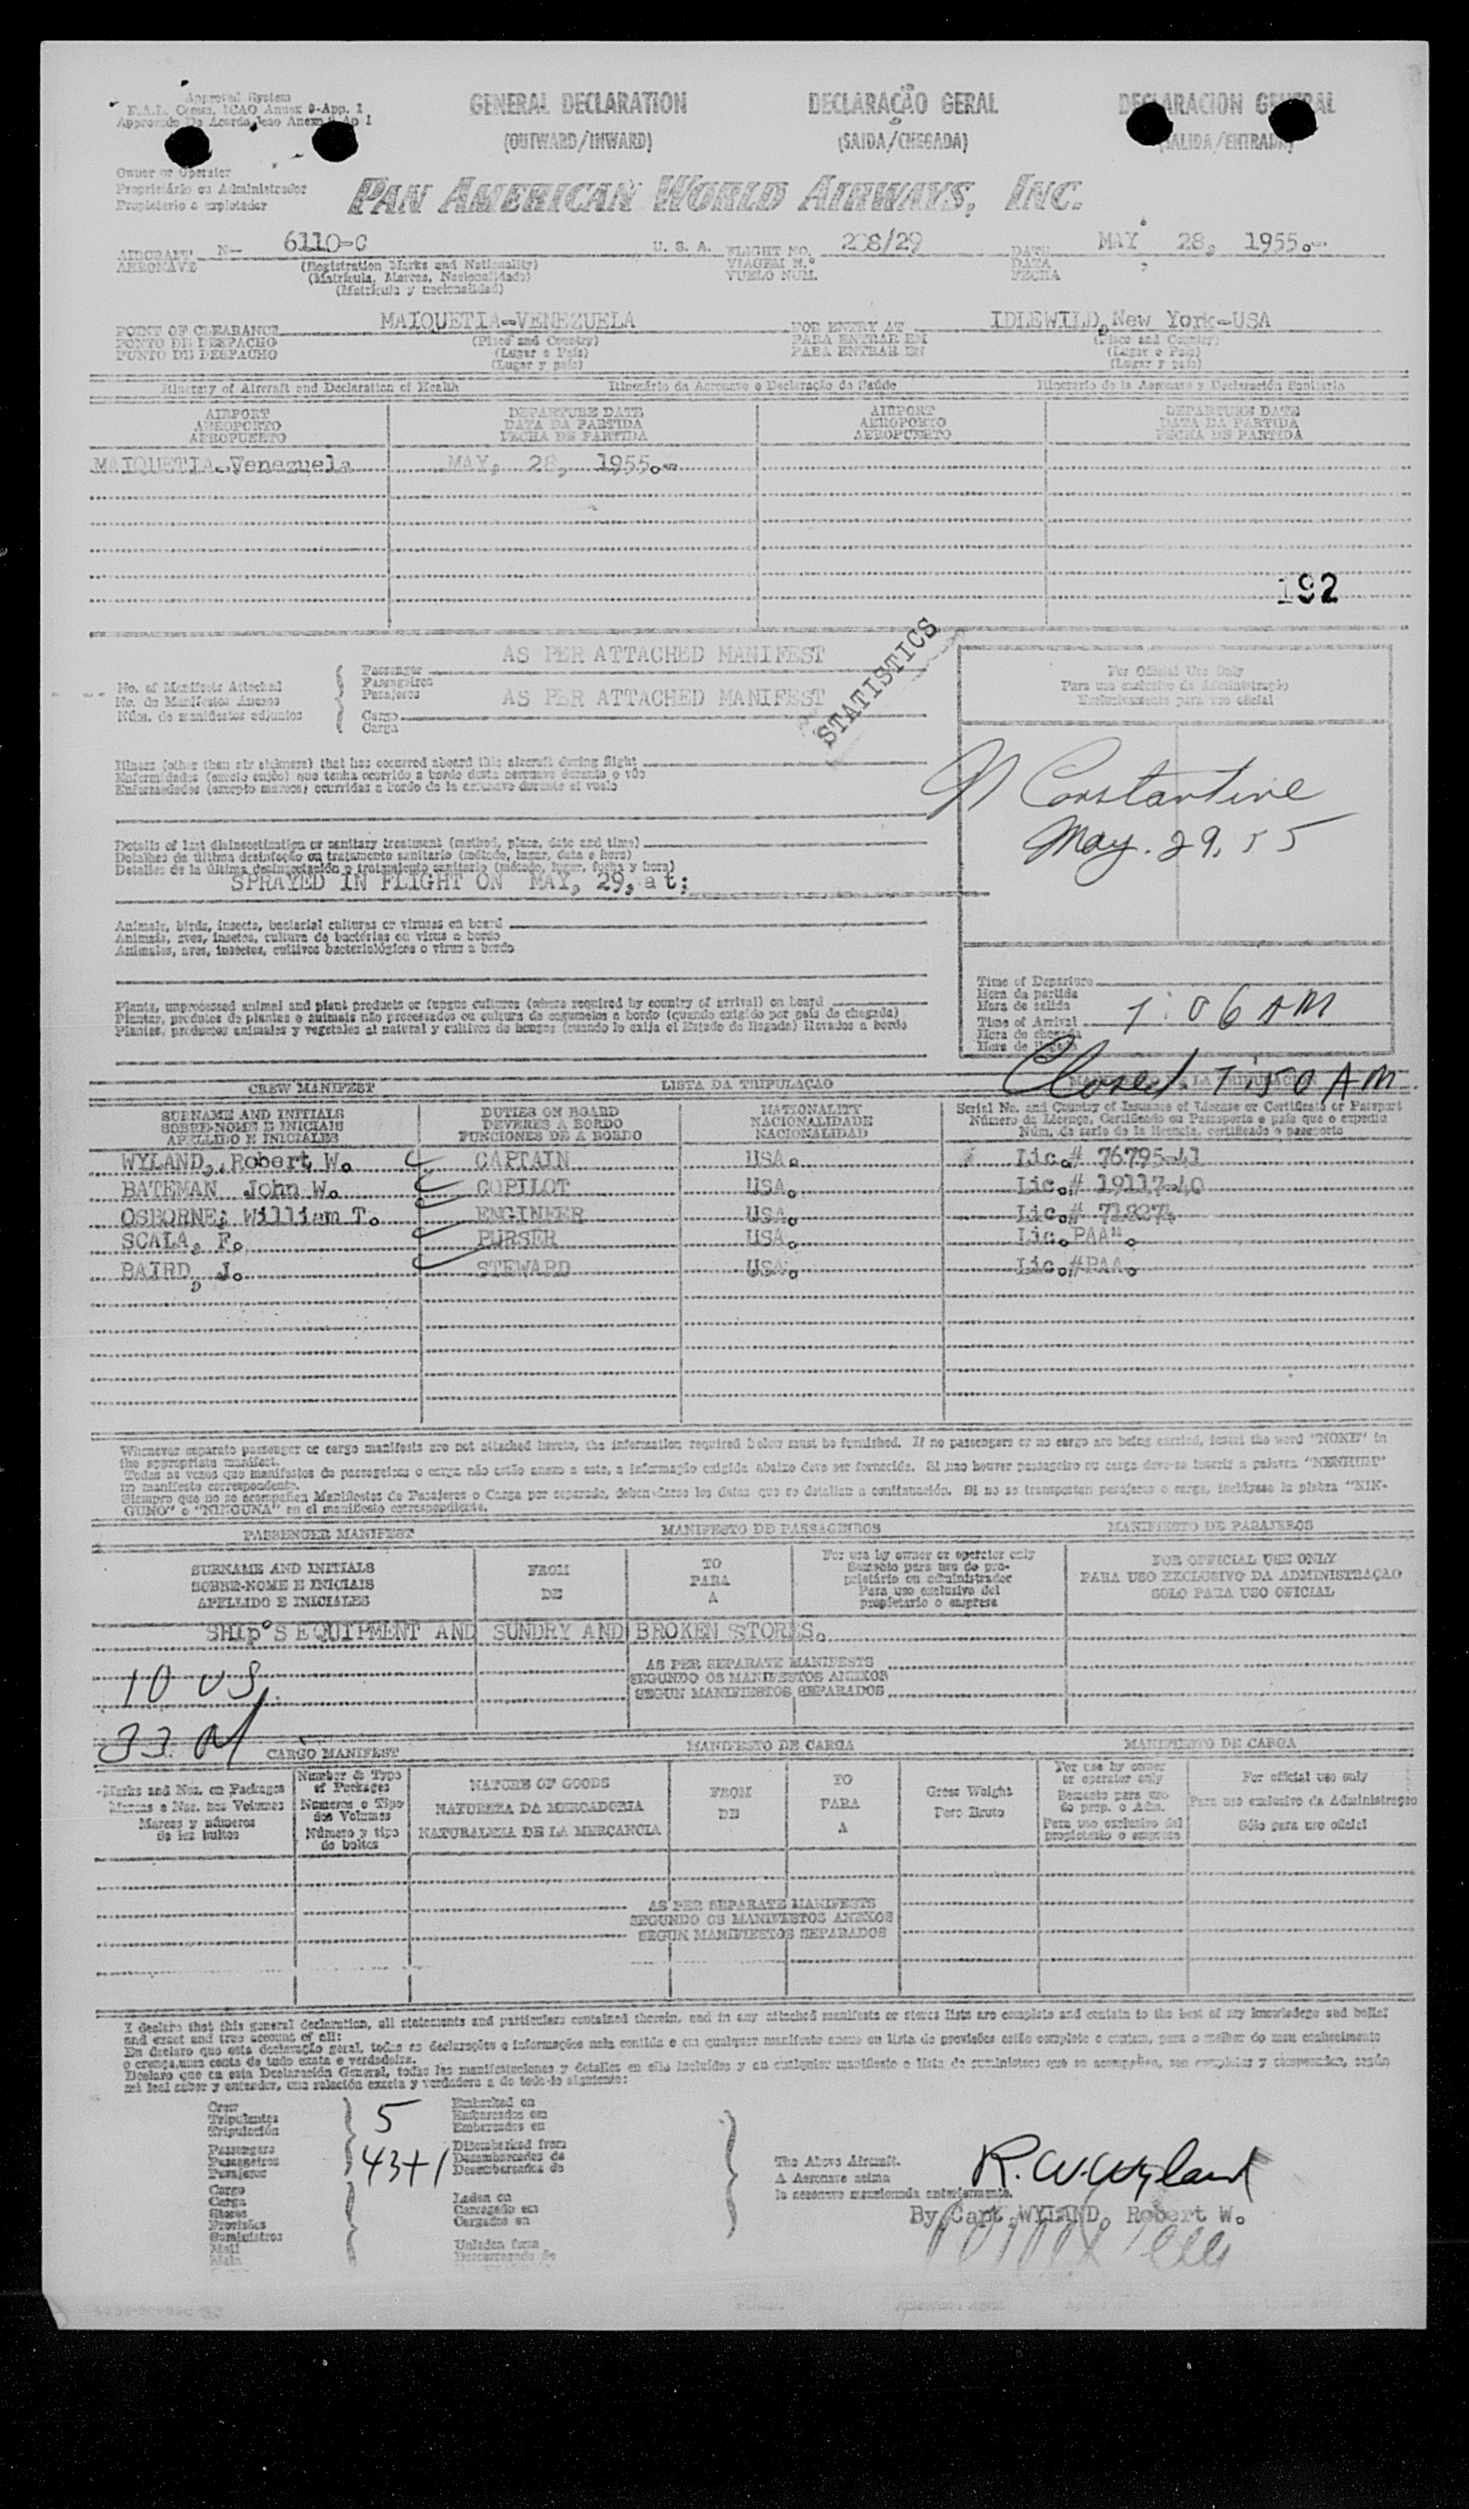 Approved System
F.A.L. Comm. ICAO Annex 9-App. 1
GENERAL DECLARATION
(OUTWARD/INWARD)
DECLARAÇÃO GERAL
(SAIDA/CHEGADA)
DECLARACION GENERAL
(SALIDA/ENTRADA)
Owner or Operator
Proprietário ou Administrador
Propietario o explotador
PAN AMERICAN WORLD AIRWAYS, INC.
AIRCRAFT N- 6110-C U. S. A. FLIGHT NO. 228/29 DATE MAY 28, 1955.-
AERONAVE (Registration Marks and Nationality) VIAGEM N.º DATA
(Matrícula, Marcas, Nacionalidade) VUELO NUM. FECHA
(Matrícula y nacionalidad)
POINT OF CLEARANCE MAIQUETIA-VENEZUELA FOR ENTRY AT IDLEWILD, New York-USA
PONTO DE DESPACHO (Place and Country) PARA ENTRAR EM (Place and Country)
PUNTO DE DESPACHO (Lugar e País) PARA ENTRAR EN (Lugar e País)
(Lugar y país) (Lugar y país)
Itinerary of Aircraft and Declaration of Health Itinerário da Aeronave e Declaração de Saúde Itinerario de la Aeronave y Declaración Sanitaria
AIRPORT DEPARTURE DATE AIRPORT DEPARTURE DATE
AEROPORTO DATA DA PARTIDA AEROPORTO DATA DA PARTIDA
AEROPUERTO FECHA DE PARTIDA AEROPUERTO FECHA DE PARTIDA
MAIQUETIA-Venezuela MAY, 28, 1955.-
192
STATISTICS
AS PER ATTACHED MANIFEST
No. of Manifests Attached Passenger
No. de Manifestos Anexos Passageiros
Núm. de manifiestos adjuntos Pasajeros AS PER ATTACHED MANIFEST
Cargo
Carga
For Official Use Only
Para uso exclusivo da Administração
Exclusivamente para uso oficial
Illness (other than air sickness) that has occurred aboard this aircraft during flight
Enfermidades (exceto enjôo) que tenha ocorrido a bordo desta aeronave durante o vôo
Enfermedades (excepto mareos) ocurridas a bordo de la aeronave durante el vuelo
Constantine
May. 29, 55
Details of last disinsectization or sanitary treatment (method, place, date and time)
Detalhes da última desinfeção ou tratamento sanitario (método, lugar, data e hora)
Detalles de la última desinsectización o tratamiento sanitario (método, lugar, fecha y hora)
SPRAYED IN FLIGHT ON MAY, 29, at;
Animals, birds, insects, bacterial cultures or viruses on board
Animais, aves, insetos, cultura de bactérias ou virus a bordo
Animales, aves, insectos, cultivos bacteriológicos o virus a bordo
Plants, unprocessed animal and plant products or fungus cultures (where required by country of arrival) on board
Plantas, produtos de plantas e animais não processados ou cultura de cogumelos a bordo (quando exigido por país de chegada)
Plantas, productos animales y vegetales al natural y cultivos de hongos (cuando lo exija el Estado de llegada) llevados a bordo
Time of Departure
Hora da partida
Hora de salida
Time of Arrival 7:06 AM
Hora de chegada
Hora de llegada
Closed 7:50 AM
CREW MANIFEST LISTA DA TRIPULAÇAO
SURNAME AND INITIALS DUTIES ON BOARD NATIONALITY Serial No. and Country of Issuance of License or Certificate or Passport
SOBRE-NOME E INICIAIS DEVERES A BORDO NACIONALIDADE Número da Licença, Certificado ou Passaporte e país que o expediu
APELLIDO E INICIALES FUNCIONES DE A BORDO NACIONALIDAD Núm. de serie de la licencia, certificado o pasaporte
WYLAND, Robert W. CAPTAIN USA. Lic.# 76795-41
BATEMAN John W. COPILOT USA. Lic.# 19117-40
OSBORNE; William T. ENGINEER USA. Lic.# 718274
SCALA, F. PURSER USA. Lic.PAA".
BAIRD, J. STEWARD USA. Lic.#PAA.
Whenever separate passenger or cargo manifests are not attached hereto, the information required below must be furnished. If no passengers or no cargo are being carried, insert the word "NONE" in
the appropriate manifest.
Todas as vezes que manifestos de passageiros o carga não estão anexo a este, a informação exigida abaixo deve ser fornecida. Si nao houver passageiro ou carga deve-se inserir a palavra "NENHUM"
no manifesto correspondente.
Siempre que no se acompañen Manifiestos de Pasajeros o Carga por separado, deben darse los datos que se detallan a continuación. Si no se transportan pasajeros o carga, inclúyase la plabra "NIN-
GUNO" o "NINGUNA" en el manifiesto correspondiente.
PASSENGER MANIFEST MANIFESTO DE PASSAGEIROS MANIFIESTO DE PASAJEROS
SURNAME AND INITIALS FROM TO For use by owner or operator only FOR OFFICIAL USE ONLY
SOBRE-NOME E INICIAIS DE PARA Somente para uso de pro- PARA USO EXCLUSIVO DA ADMINISTRAÇAO
APELLIDO E INICIALES A prietário ou administrador SOLO PARA USO OFICIAL
Para uso exclusivo del
propietario o empresa
SHIP'S EQUIPMENT AND SUNDRY AND BROKEN STORES.
AS PER SEPARATE MANIFESTS
SEGUNDO OS MANIFESTOS ANEXOS
SEGUN MANIFIESTOS SEPARADOS
10 US
33 A
CARGO MANIFEST MANIFESTO DE CARGA MANIFIESTO DE CARGA
Marks and Nos. on Packages Number & Type of Packages NATURE OF GOODS FROM TO Gross Weight For use by owner or operator only For official use only
Marcas e Nos. nos Volumes Numeros e Tipo dos Volumes NATUREZA DA MERCADORIA DE PARA Peso Bruto Somente para uso do prop. o Adm. Para uso exclusivo da Administraçao
Marcas y números de los bultos Número y tipo de bultos NATURALEZA DE LA MERCANCIA A Para uso exclusivo del propietario o empresa Sólo para uso oficial
AS PER SEPARATE MANIFESTS
SEGUNDO OS MANIFESTOS ANEXOS
SEGUN MANIFIESTOS SEPARADOS
I declare that this general declaration, all statements and particulars contained therein, and in any attached manifests or stores lists are complete and contain to the best of my knowledege and belief
and exact and true account of all:
Em declaro que esta declaração geral, todas as declarações e informações nela contida e em qualquer manifesto anexo ou lista de provisões estão completo e contem, para o melhor do meu conhecimento
e crença, uma conta de tudo exata e verdadeira.
Declaro que en esta Declaración General, todas las manifestaciones y detalles en ella incluidos y en cualquier manifiesto o lista de suministros que se acompañen, son completas y comprenden, según
mi leal saber y entender, una relación exacta y verdadera a de todo lo siguiente:
Crew 5 Embarked on
Tripulantes Embarcados em
Tripulación Embarcados en
Passengers 43+1 Disembarked from
Passageiros Desembarcados de
Pasajeros Desembarcados de
Cargo
Carga Laden on
Stores Carregado em
Provisões Cargados en
Suministros
Mail Unladen from
Mala
The Above Aircraft.
A Aeronave acima
la aeronave mencionada anteriormente.
R. W. Wyland
By Capt. WYLAND, Robert W.